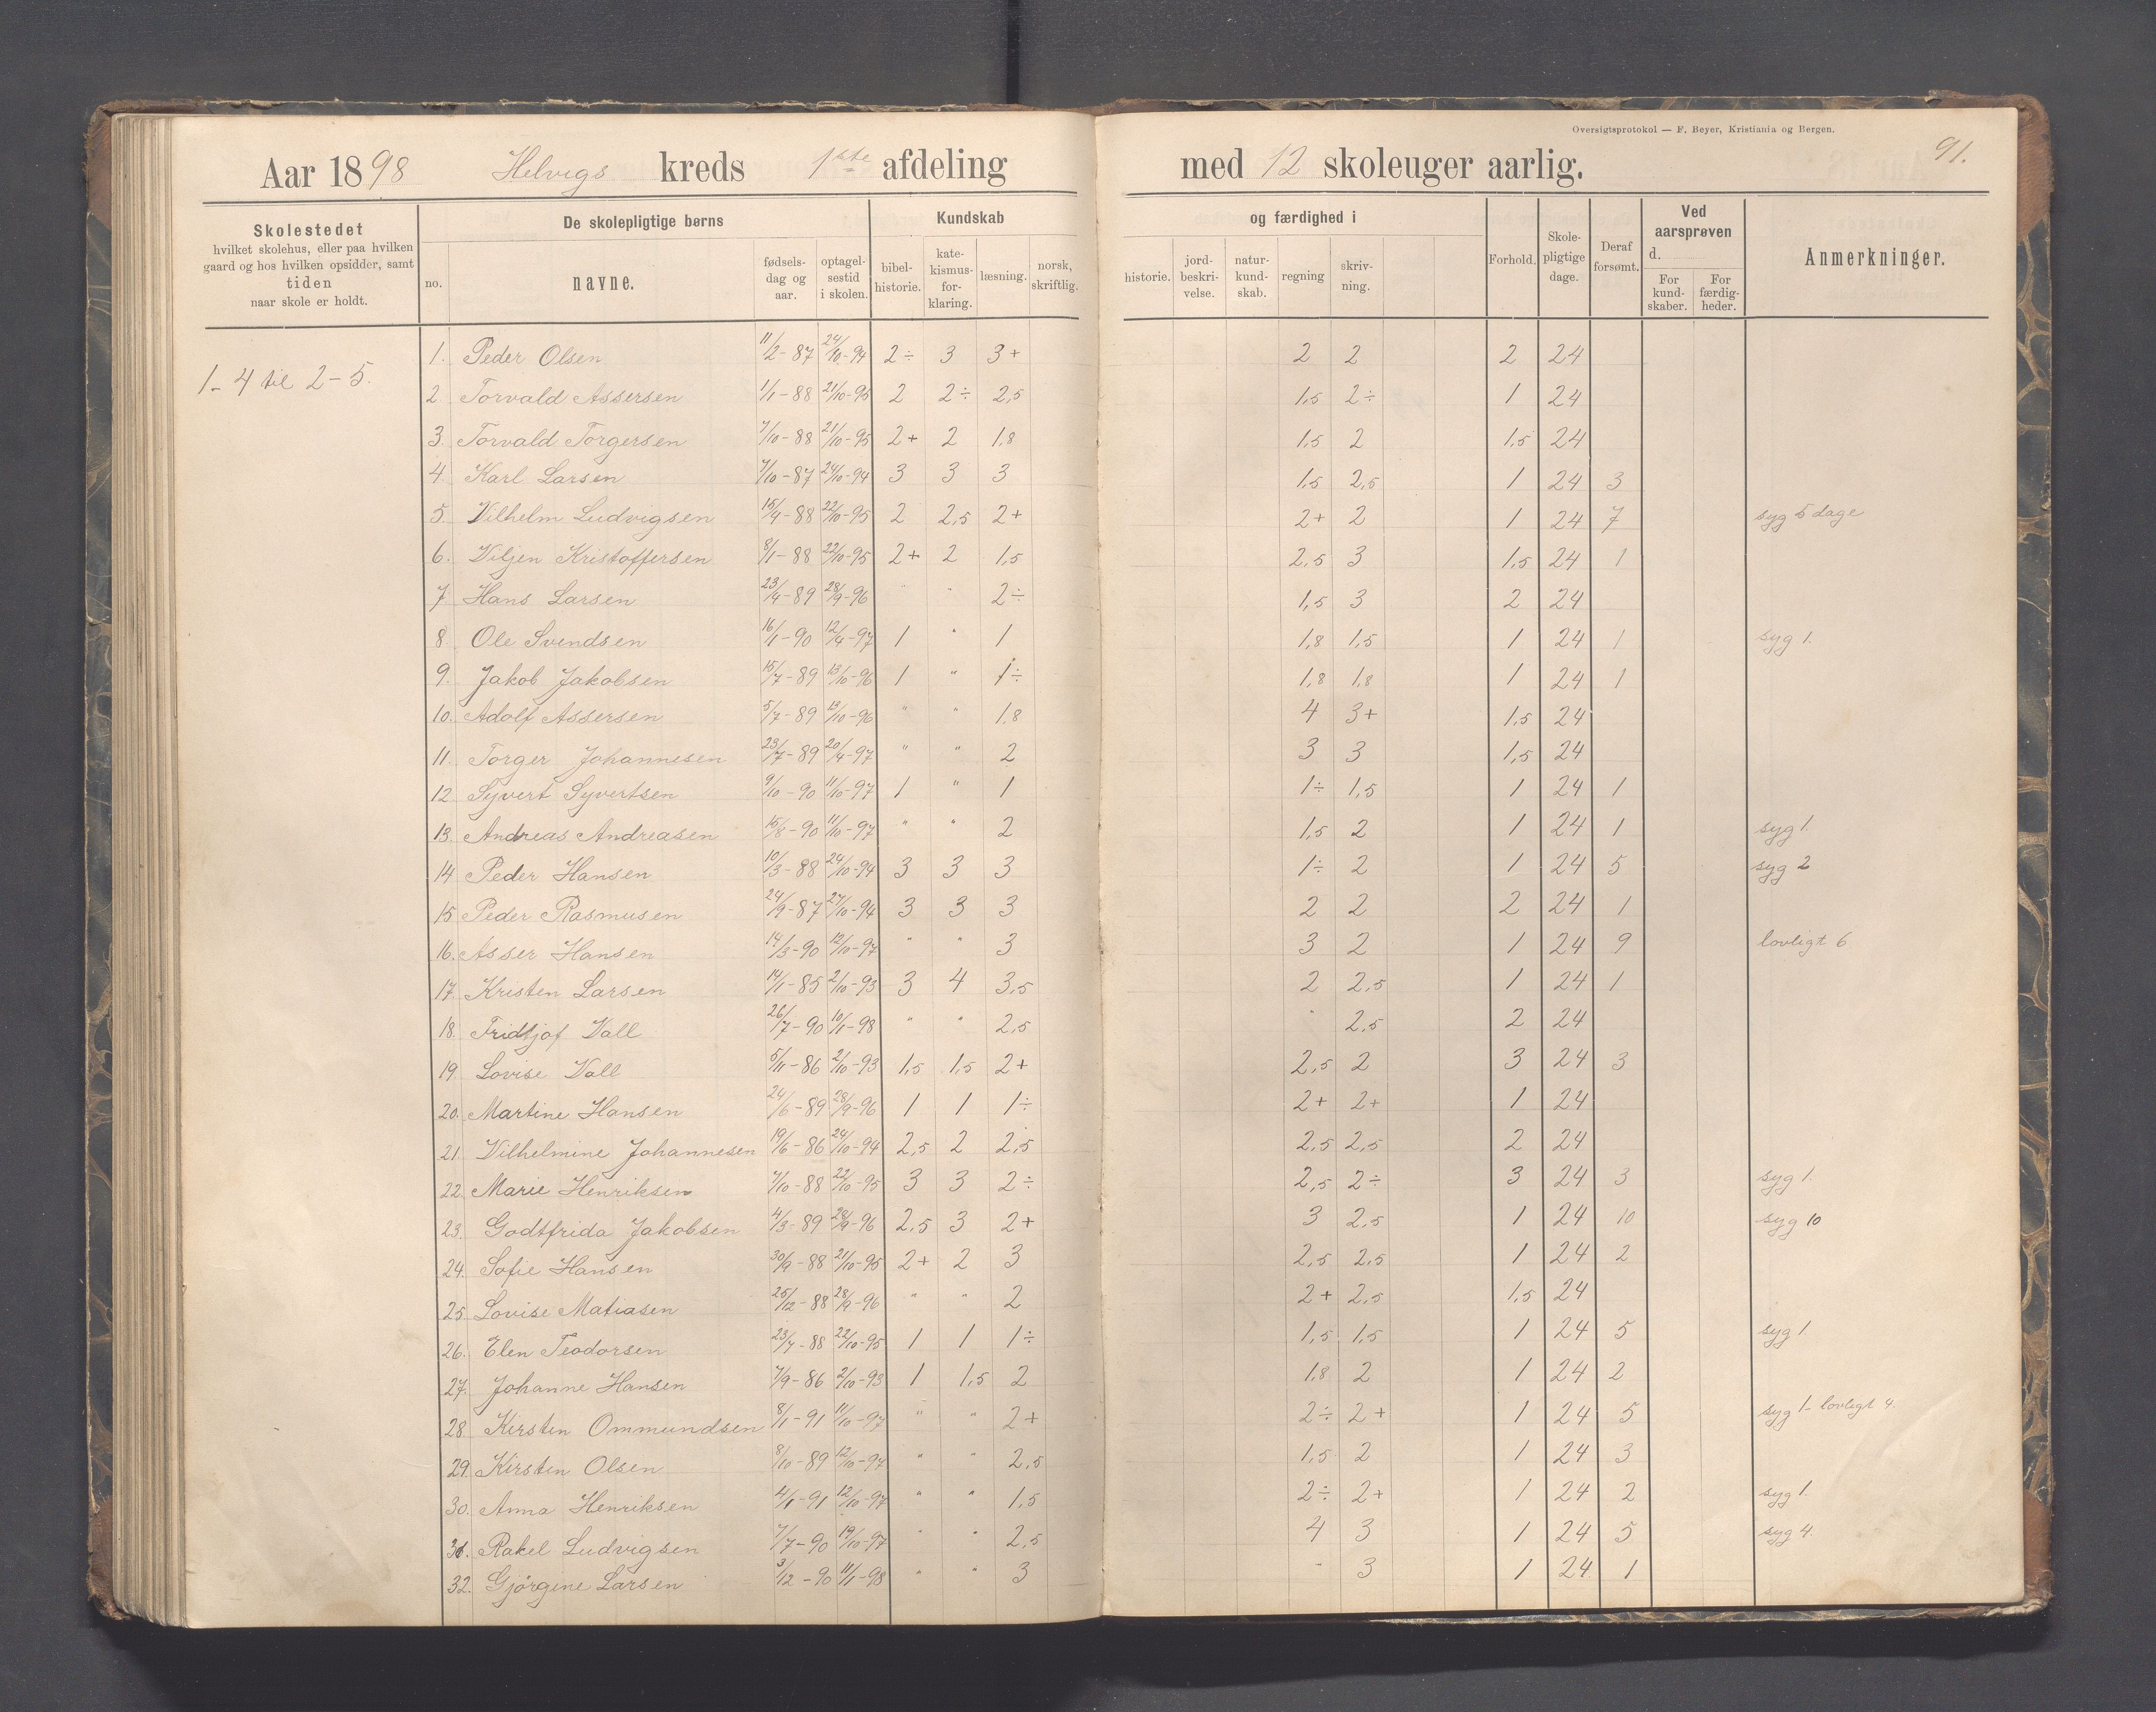 Oversigtsprotokol — F. Beyer, Kristiania og Bergen.
91.
Aar 1898 Helvigs kreds 1ste afdeling med 12 skoleuger aarlig.
Skolestedet hvilket skolehus, eller paa hvilken gaard og hos hvilken opsidder, samt tiden naar skole er holdt.
De skolepligtige børns
no. navne. fødselsdag og aar. optagelsestid i skolen.
Kundskab og færdighed i
bibelhistorie. katekismusforklaring. læsning. norsk, skriftlig. historie. jordbeskrivelse. naturkundskab. regning skrivning.
Forhold. Skolepligtige dage. Deraf forsømt.
Ved aarsprøven d.
For kundskaber. For færdigheder.
Anmerkninger.
1-4 til 2-5.
1. Peder Olsen 11/2-87 24/10-94 2÷ 3 3+ 2 2 2 24
2 Torvald Assersen 1/1-88 21/10-95 2 2÷ 2,5 1,5 2÷ 1 24
3. Torvald Torgersen 7/10-88 21/10-95 2+ 2 1,8 1,5 2 1,5 24
4. Karl Larsen 7/10-87 24/10-94 3 3 3 1,5 2,5 1 24 3
5. Vilhelm Ludvigsen 15/4-88 22/10-95 2 2,5 2+ 2+ 2 1 24 7 syg 5 dage
6. Viljen Kristoffersen 8/1-88 22/10-95 2+ 2 1,5 2,5 3 1,5 24 1
7 Hans Larsen 23/4-89 28/9-96 " " 2÷ 1,5 3 2 24
8. Ole Svendsen 16/1-90 12/4-97 1 " 1 1,8 1,5 1 24 1 syg 1.
9. Jakob Jakobsen 15/7-89 13/10-96 1 " 1÷ 1,8 1,8 1 24 1
10. Adolf Assersen 5/7-89 13/10-96 " " 1,8 4 3+ 1,5 24
11. Torger Johannesen 23/7-89 20/4-97 " " 2 3 3 1,5 24
12. Syvert Syvertsen 9/10-90 11/10-97 1 " 1 1÷ 1,5 1 24 1
13. Andreas Andreasen 15/8-90 11/10-97 " " 2 1,5 2 1 24 1 syg 1.
14 Peder Hansen 10/3-88 24/10-94 3 3 3 1÷ 2 1 24 5 syg 2
15 Peder Rasmusen 24/9-87 27/10-94 3 3 3 2 2 2 24 1
16. Asser Hansen 14/3-90 12/10-97 " " 3 3 2 1 24 9 lovligt 6
17. Kristen Larsen 14/1-85 2/10-93 3 4 3,5 2 2,5 1 24 1
18. Fridtjof Vall 26/7-90 10/1-98 " " 2,5 " 2,5 2 24
19. Lovise Vall 5/11-86 2/10-93 1,5 1,5 2+ 2,5 2 3 24 3
20. Martine Hansen 24/6-89 28/9-96 1 1 1÷ 2+ 2+ 1 24
21. Vilhelmine Johannesen 19/6-86 24/10-94 2,5 2 2,5 2,5 2,5 2 24
22. Marie Henriksen 7/10-88 22/10-95 3 3 2÷ 2,5 2÷ 3 24 3 syg 1.
23. Godtfrida Jakobsen 4/3-89 28/9-96 2,5 3 2+ 3 2,5 1 24 10 syg 10
24. Sofie Hansen 30/9-88 21/10-95 2+ 2 3 2,5 2,5 1 24 2
25. Lovise Matiasen 25/12-88 28/9-96 " " 2 2+ 2,5 1,5 24
26. Elen Teodorsen 23/7-88 22/10-95 1 1 1÷ 1,5 1,5 1 24 5 syg 1.
27. Johanne Hansen 7/9-86 2/10-93 1 1,5 2 1,8 2 1 24 2
28. Kirsten Ommundsen 8/1-91 11/10-97 " " 2+ 2÷ 2+ 1 24 5 syg 1- lovligt 4.
29. Kirsten Olsen 8/10-89 12/10-97 " " 2,5 1,5 2 1 24 3
30. Anna Henriksen 4/1-91 12/10-97 " " 1,5 2÷ 2+ 1 24 2 syg 1.
31. Rakel Ludvigsen 7/7-90 19/10-97 " " 2,5 4 3 1 24 5 syg 4.
32. Gjørgine Larsen 3/12-90 11/1-98 " " 3 " 3 1 24 1